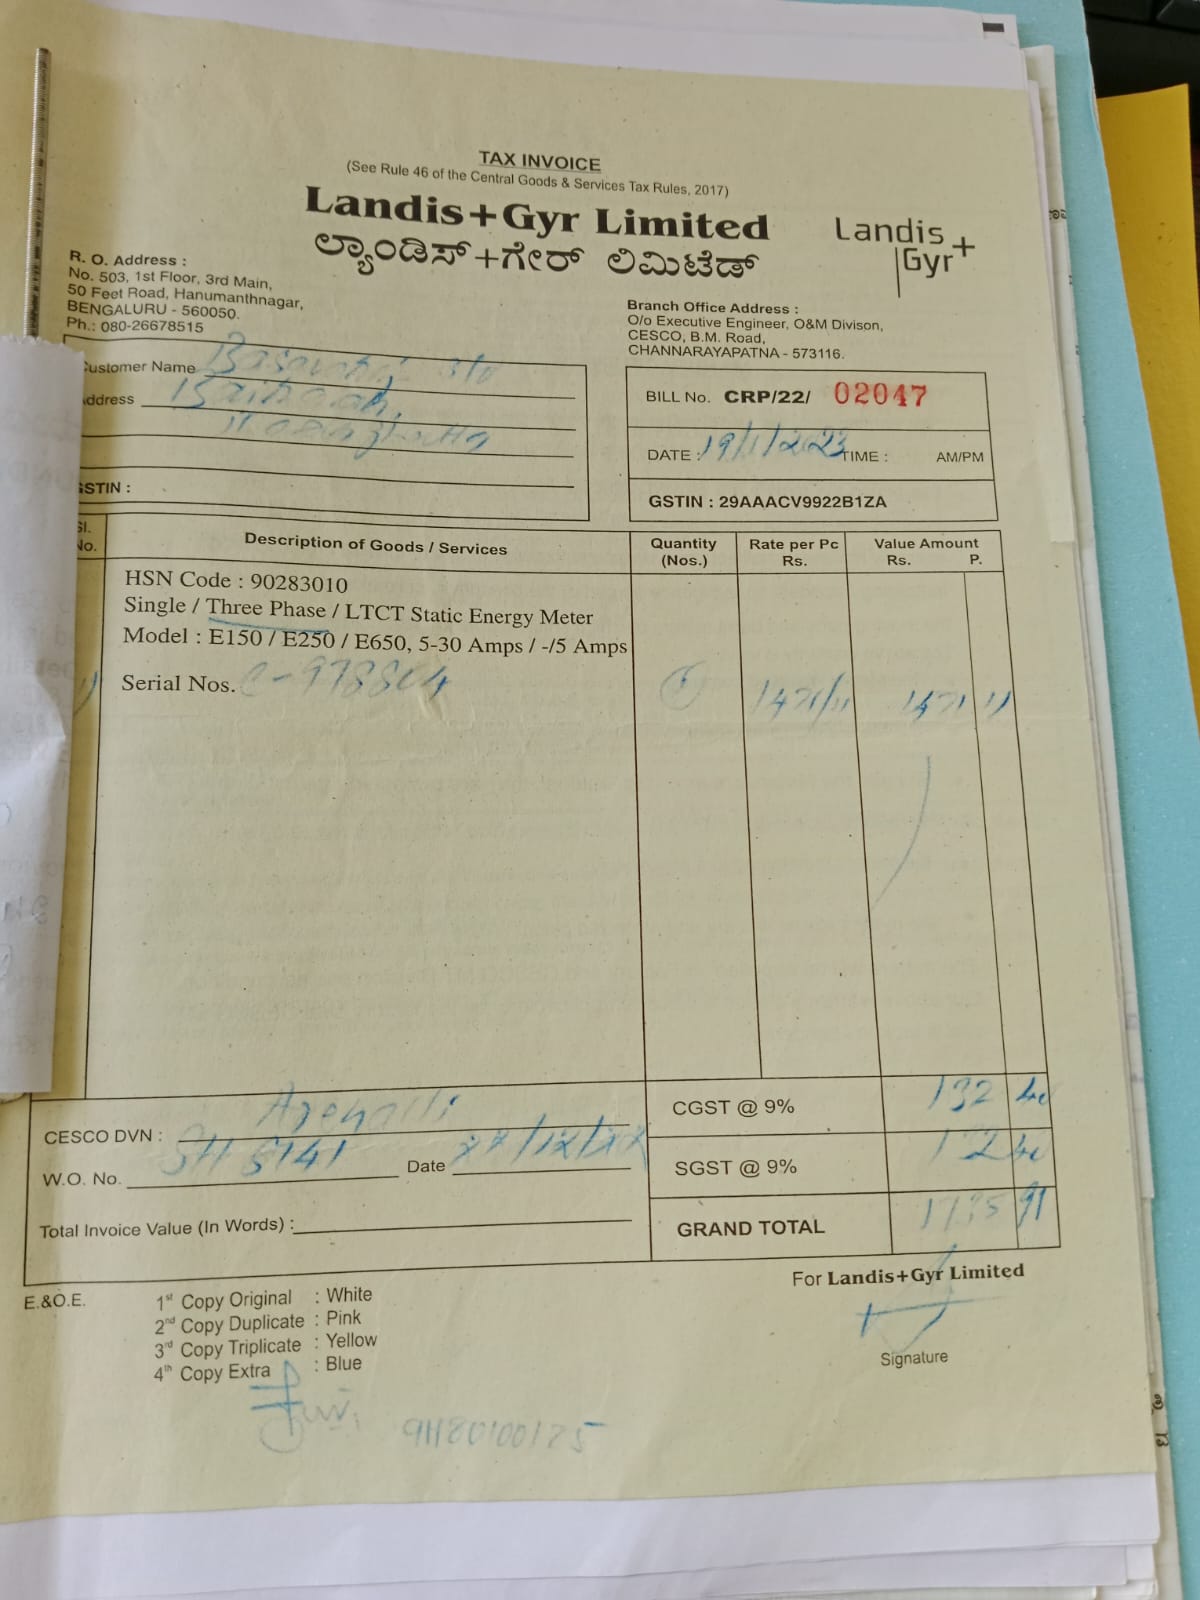 TAX INVOICE
(See Rule 46 of the Central Goods & Services Tax Rules, 2017)
Landis+Gyr Limited
ಲ್ಯಾಂಡಿಸ್+ಗೇರ್ ಲಿಮಿಟೆಡ್
Landis
Gyr+
R. O. Address :
No. 503, 1st Floor, 3rd Main,
50 Feet Road, Hanumanthnagar,
BENGALURU - 560050.
Ph.: 080-26678515
Branch Office Address :
O/o Executive Engineer, O&M Divison,
CESCO, B.M. Road,
CHANNARAYAPATNA - 573116.
ustomer Name
ddress
STIN :
BILL No. CRP/22/ 02047
DATE : 19/1/2023 TIME : AM/PM
GSTIN : 29AAACV9922B1ZA
Sl. No.
Description of Goods / Services
Quantity (Nos.)
Rate per Pc Rs.
Value Amount Rs. P.
HSN Code : 90283010
Single / Three Phase / LTCT Static Energy Meter
Model : E150 / E250 / E650, 5-30 Amps / -/5 Amps
1) Serial Nos. C-978804 1 1471/11 1471 11
CGST @ 9% 132 40
CESCO DVN :
SGST @ 9% 132 40
W.O. No. 5141 Date
GRAND TOTAL 1735 91
Total Invoice Value (In Words) :
For Landis+Gyr Limited
E.&O.E.
1st Copy Original : White
2nd Copy Duplicate : Pink
3rd Copy Triplicate : Yellow
4th Copy Extra : Blue
Signature